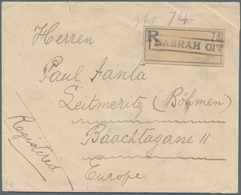 No 74
R 74
BASRAH CIT
Herren
Paul Fanta
Leitmeritz (Böhmen)
Baachtagasse 11
Registered
Europe